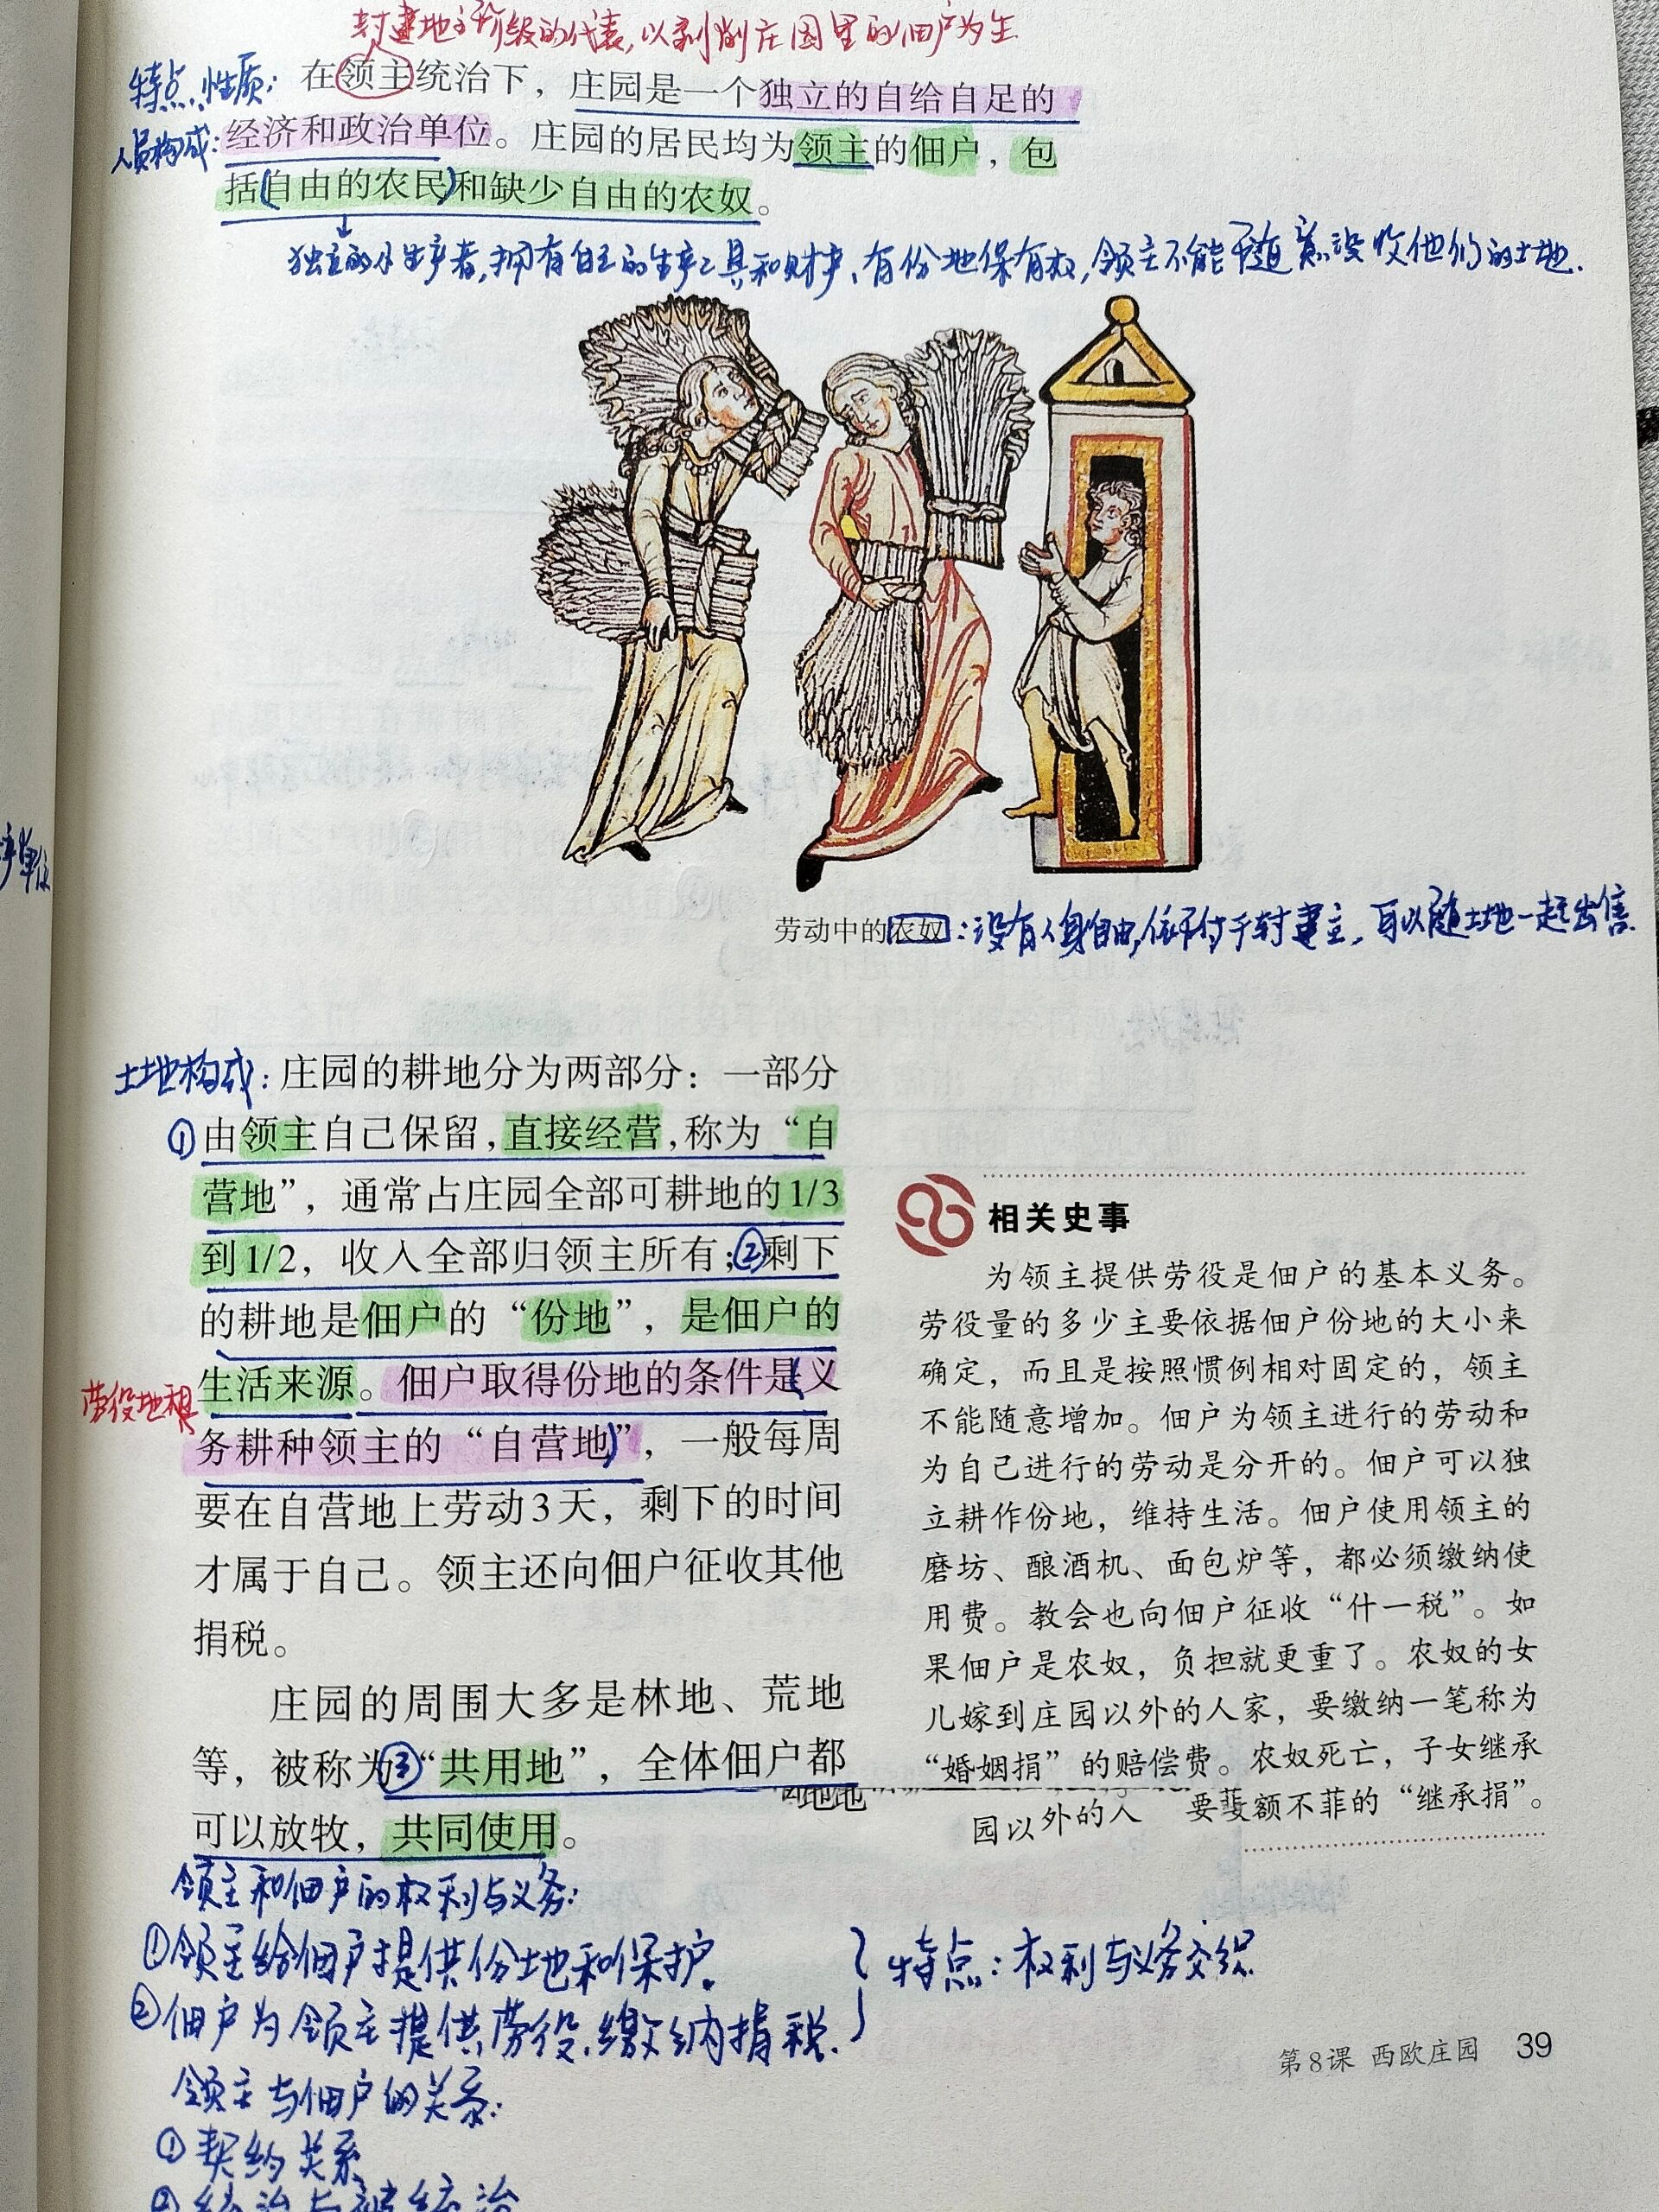 封建地主阶级的代表,以剥削庄园里的佃户为生.
特点、性质: 在领主统治下，庄园是一个独立的自给自足的
人员构成: 经济和政治单位。庄园的居民均为领主的佃户，包
括(自由的农民)和缺少自由的农奴。
独立的小生产者,拥有自主的生产工具和财产、有份地保有权,领主不能随意没收他们的土地.
劳动中的农奴:没有人身自由,依附于封建主,可以随土地一起出售.
产单位
土地构成: 庄园的耕地分为两部分：一部分
①由领主自己保留，直接经营，称为“自
营地”，通常占庄园全部可耕地的1/3
到1/2，收入全部归领主所有；②剩下
的耕地是佃户的“份地”，是佃户的
生活来源。佃户取得份地的条件是(义
劳役地租
务耕种领主的“自营地)”，一般每周
要在自营地上劳动3天，剩下的时间
才属于自己。领主还向佃户征收其他
捐税。
庄园的周围大多是林地、荒地
等，被称为③“共用地”，全体佃户都
可以放牧，共同使用。
相关史事
为领主提供劳役是佃户的基本义务。
劳役量的多少主要依据佃户份地的大小来
确定，而且是按照惯例相对固定的，领主
不能随意增加。佃户为领主进行的劳动和
为自己进行的劳动是分开的。佃户可以独
立耕作份地，维持生活。佃户使用领主的
磨坊、酿酒机、面包炉等，都必须缴纳使
用费。教会也向佃户征收“什一税”。如
果佃户是农奴，负担就更重了。农奴的女
儿嫁到庄园以外的人家，要缴纳一笔称为
“婚姻捐”的赔偿费。农奴死亡，子女继承
园以外的人 要 额不菲的“继承捐”。
领主和佃户的权利与义务:
①领主给佃户提供份地和保护.
②佃户为领主提供劳役.缴纳捐税.
特点:权利与义务交织
领主与佃户的关系:
①契约关系
②统治与被统治
第8课 西欧庄园 39